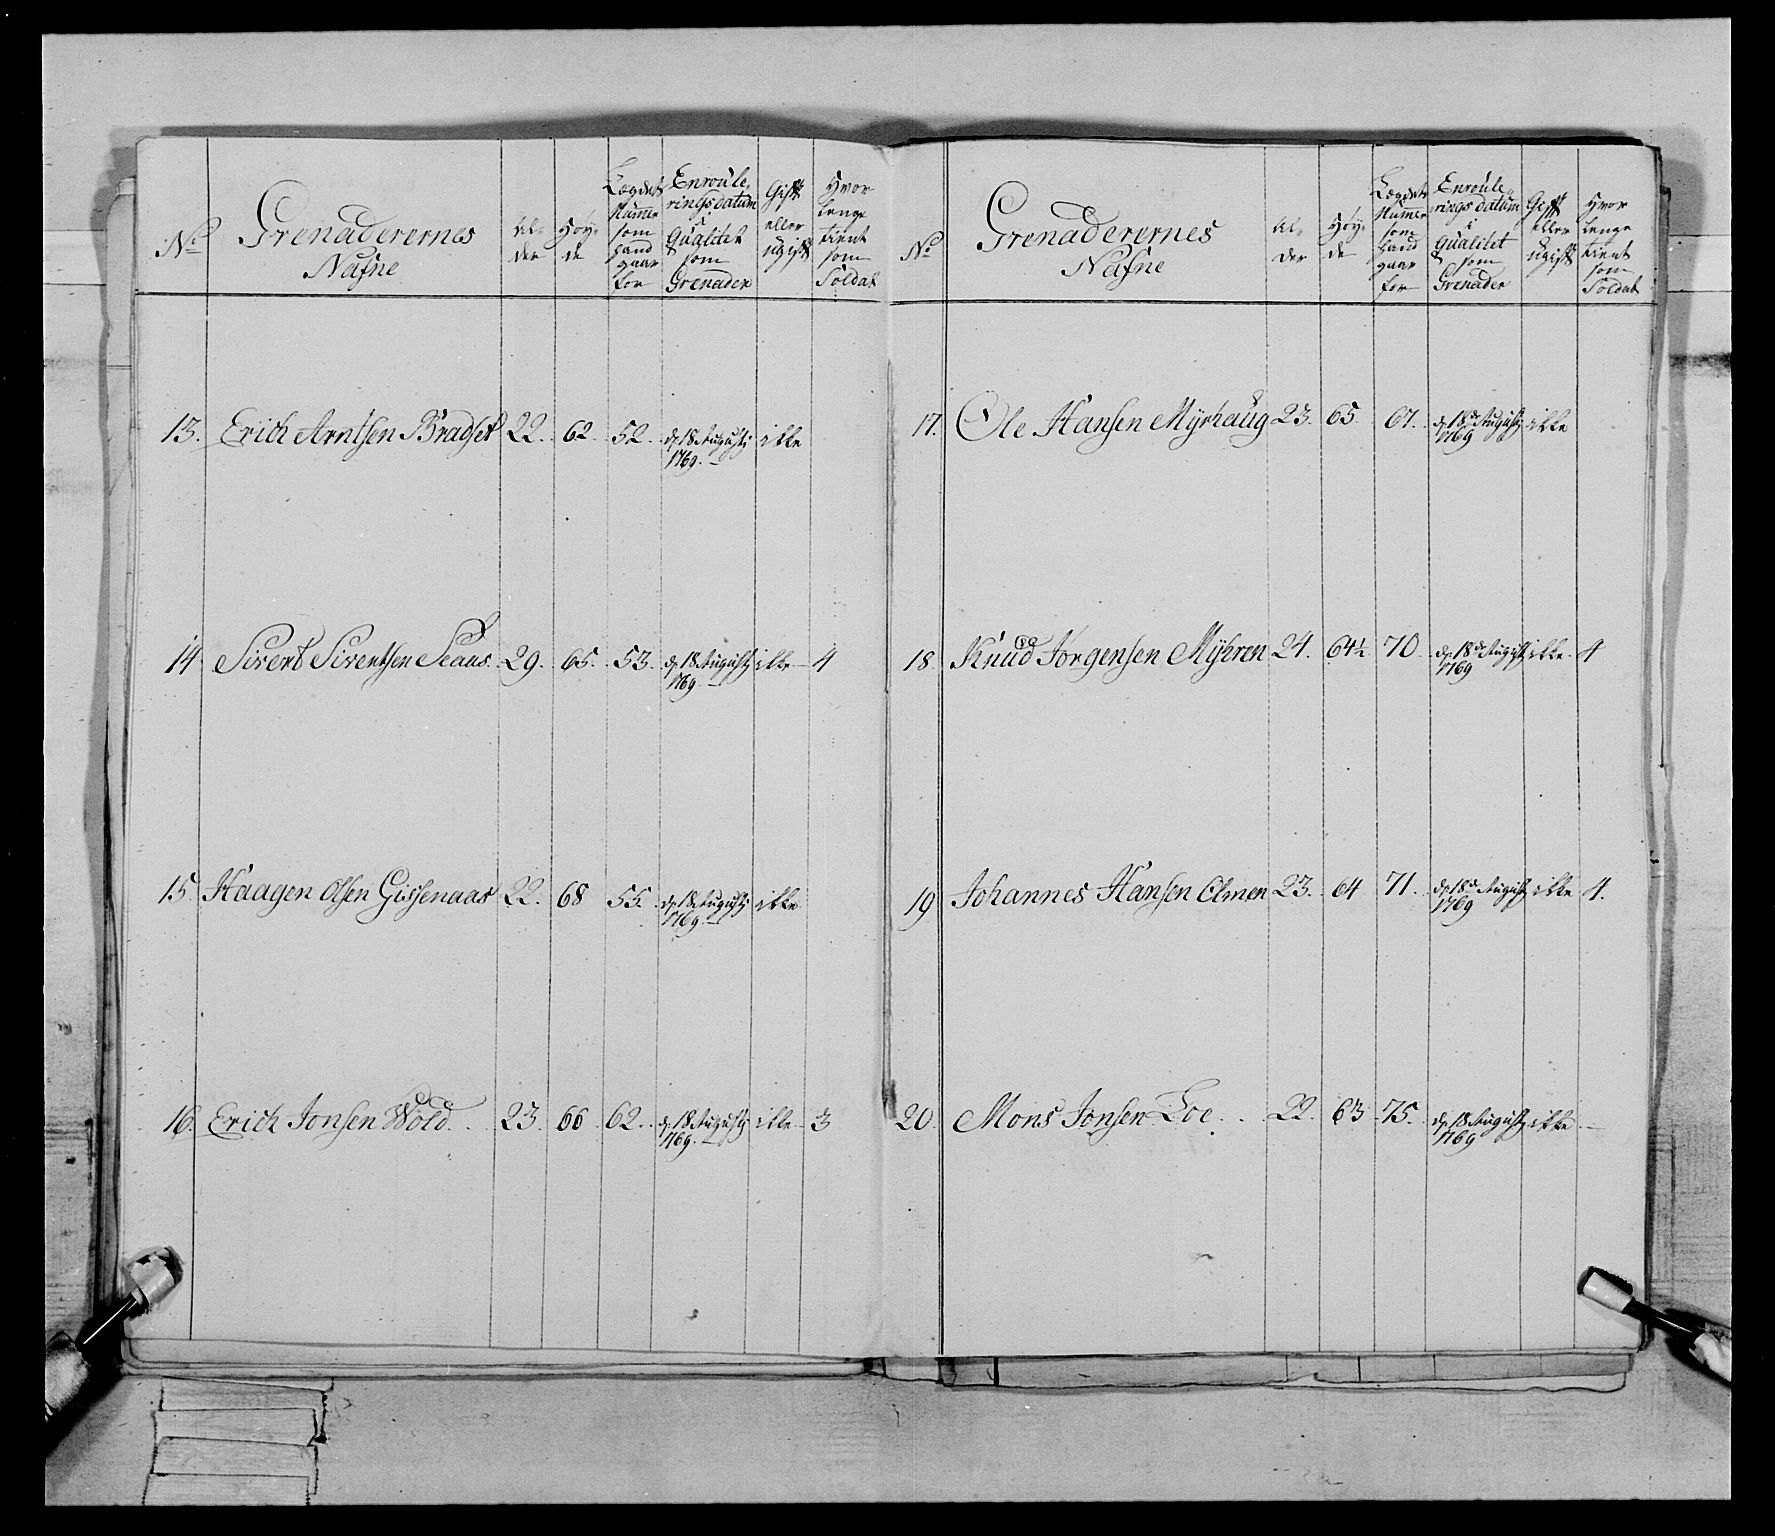 No
Grenaderernes
Nafne
Al-
der
Høy-
de
Lægdets
Numer
som
hand
gaar
for
Enroule-
ringsdatum
i
Qualitet
som
Grenader
Gift
eller
ugift
Hvor
lenge
tient
som
Soldat
13. Erich Arntsen Bradset 22. 62. 52. d. 18 Augusti ikke
1769.
14 Sivert Siventsen 29. 65. 53. d. 18 Augusti ikke - 4
1769.
15 Haagen Olsen Gissenaas 22. 68 55. d. 18 Augusti ikke
1769.
16. Erich Jonsen Wold. 23. 66 62. d. 18 Augusti ikke - 3
1769.
No
Grenaderernes
Nafne
Al-
der
Høy-
de
Lægdets
Numer
som
hand
gaar
for
Enroule-
ringsdatum
i
Qualitet
som
Grenader
Gift
eller
ugift
Hvor
lenge
tient
som
Soldat
17. Ole Hansen Myrhaug 23. 65 67. d. 18de Augusti ikke
1769
18. Knud Jørgensen Myhren 24. 64½ 70. d. 18de Augusti ikke. 4
1769
19 Johannes Hansen Olmen 23. 64 71. d. 18de Augusti ikke 4.
1769
20. Mons Jonsen Loe. 22. 63 75. d. 18 Augusti ikke. -
1769